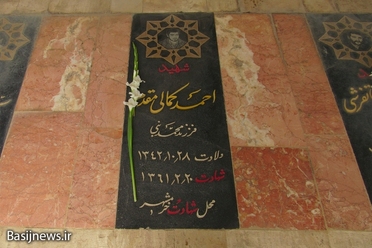 شهید
احمد کمالی مقدم
فرزند محمدنبی
ولادت ۱۳۴۲/۱۰/۲۸
شهادت ۱۳۶۱/۲/۲۰
محل شهادت خرمشهر
Basijnews.ir